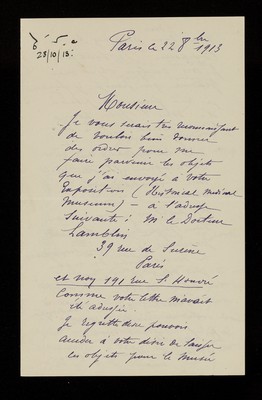 28/10/13.
Paris le 22 8bre 1913
Monsieur
Je vous serais très reconnaissant
de vouloir bien donner
des ordres pour me
faire parvenir les objets
que j'ai envoyé a votre
Exposition (Historical Medical
Museum) – à l'adresse
suivante: Mr le Docteur
Lamblin
39 rue de
Paris
et non 191 rue St Honoré
comme votre lettre m'avait
été adressée.
Je regrette de ne pouvoir
accéder à votre désir de laisser
les objets pour le Musée